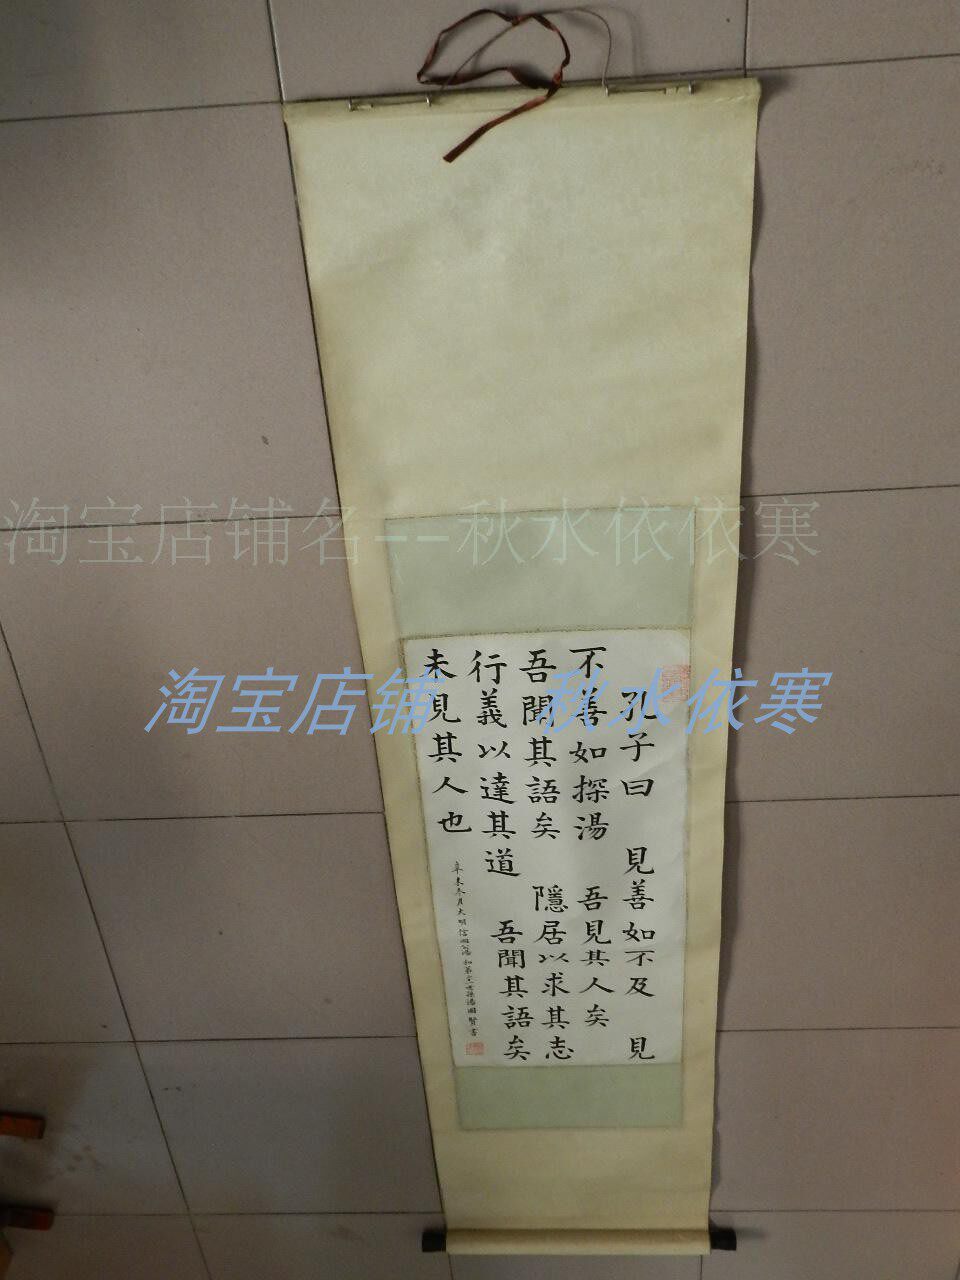 淘宝店铺名--秋水依依寒
淘宝店铺 秋水依寒
孔子曰 見善如不及 見
不善如探湯 吾見其人矣
吾聞其語矣 隱居以求其志
行義以達其道 吾聞其語矣
未見其人也
辛未冬月大明信國公湯和第世孫湯國賢書